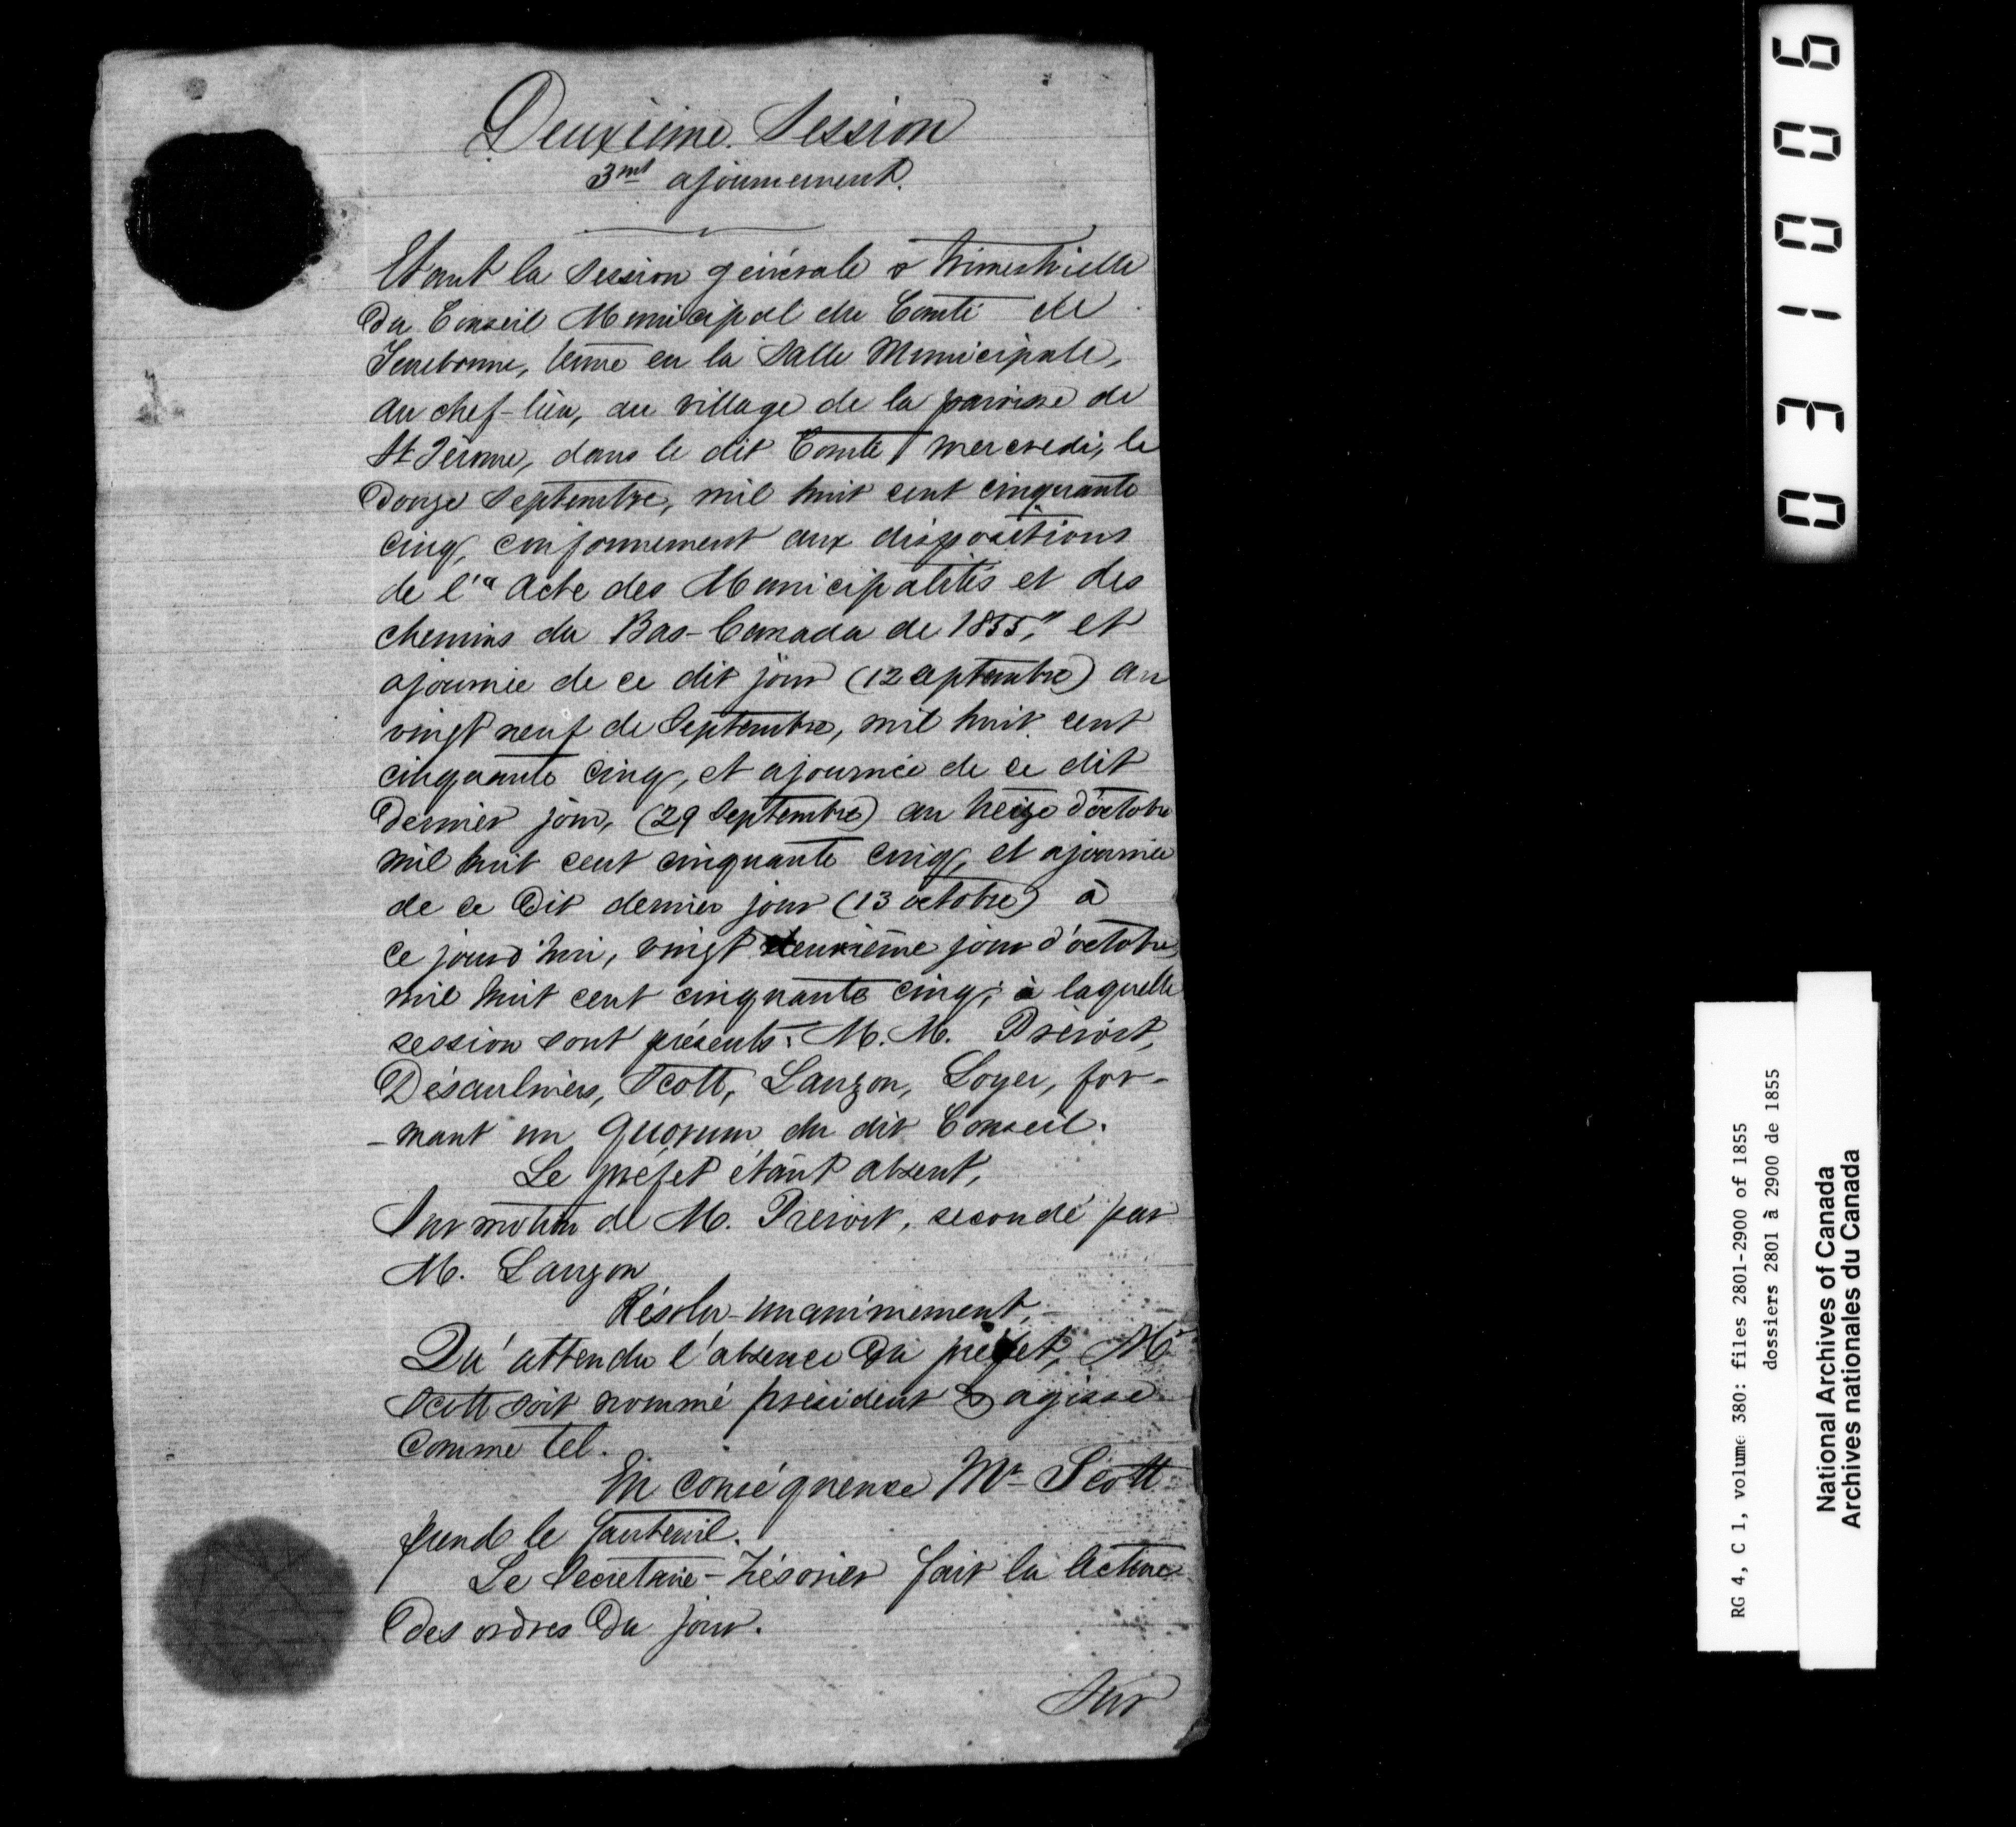 Deuxième Session
3me ajournement.
Etant la Session générale & trimestrielle
Du Conseil Municipal du Comté de
Terrebonne, tenue en la Salle Municipale,
au chef-lieu, au village de la paroisse de
St Jérome, dans le dit Comté, mercredi, le
Douze Septembre, mil huit cent cinquante
cinq, conformement aux dispositions
de l'" Acte des Municipalités et des
chemins du Bas-Canada de 1855," et
ajournée de ce dit jour (12 septembre) au
vingt neuf de Septembre, mil huit cent
cinquante cinq, et ajournée de ce dit
Dernier jour, (29 Septembre) au treize d'octobre
mil huit cent cinquante cinq, et ajournée
de ce Dit dernier jour (13 octobre) à
ce jourd'hui, vingt deuxième jour d'octobre
mil huit cent cinquante cinq; à laquelle
session sont présents: M. M. Prévost,
Désaulniers, Scott, Lauzon, Loyer, for-
-mant un Quorum du dit Conseil.
Le préfet étant absent,
Sur motion de M. Prévost, secondé par
M. Lauzon
Résolu unanimement,
Qu'attendu l'absence Du préfet, Mr
Scott soit nommé président & agisse
Comme tel.
En conséquence Mr Scott
prend le fauteuil.
Le Secrétaire-Trésorier fait la lecture
Des ordres Du jour.
Sur
031006
RG 4, C 1, volume 380: files 2801-2900 of 1855
dossiers 2801 à 2900 de 1855
National Archives of Canada
Archives nationales du Canada